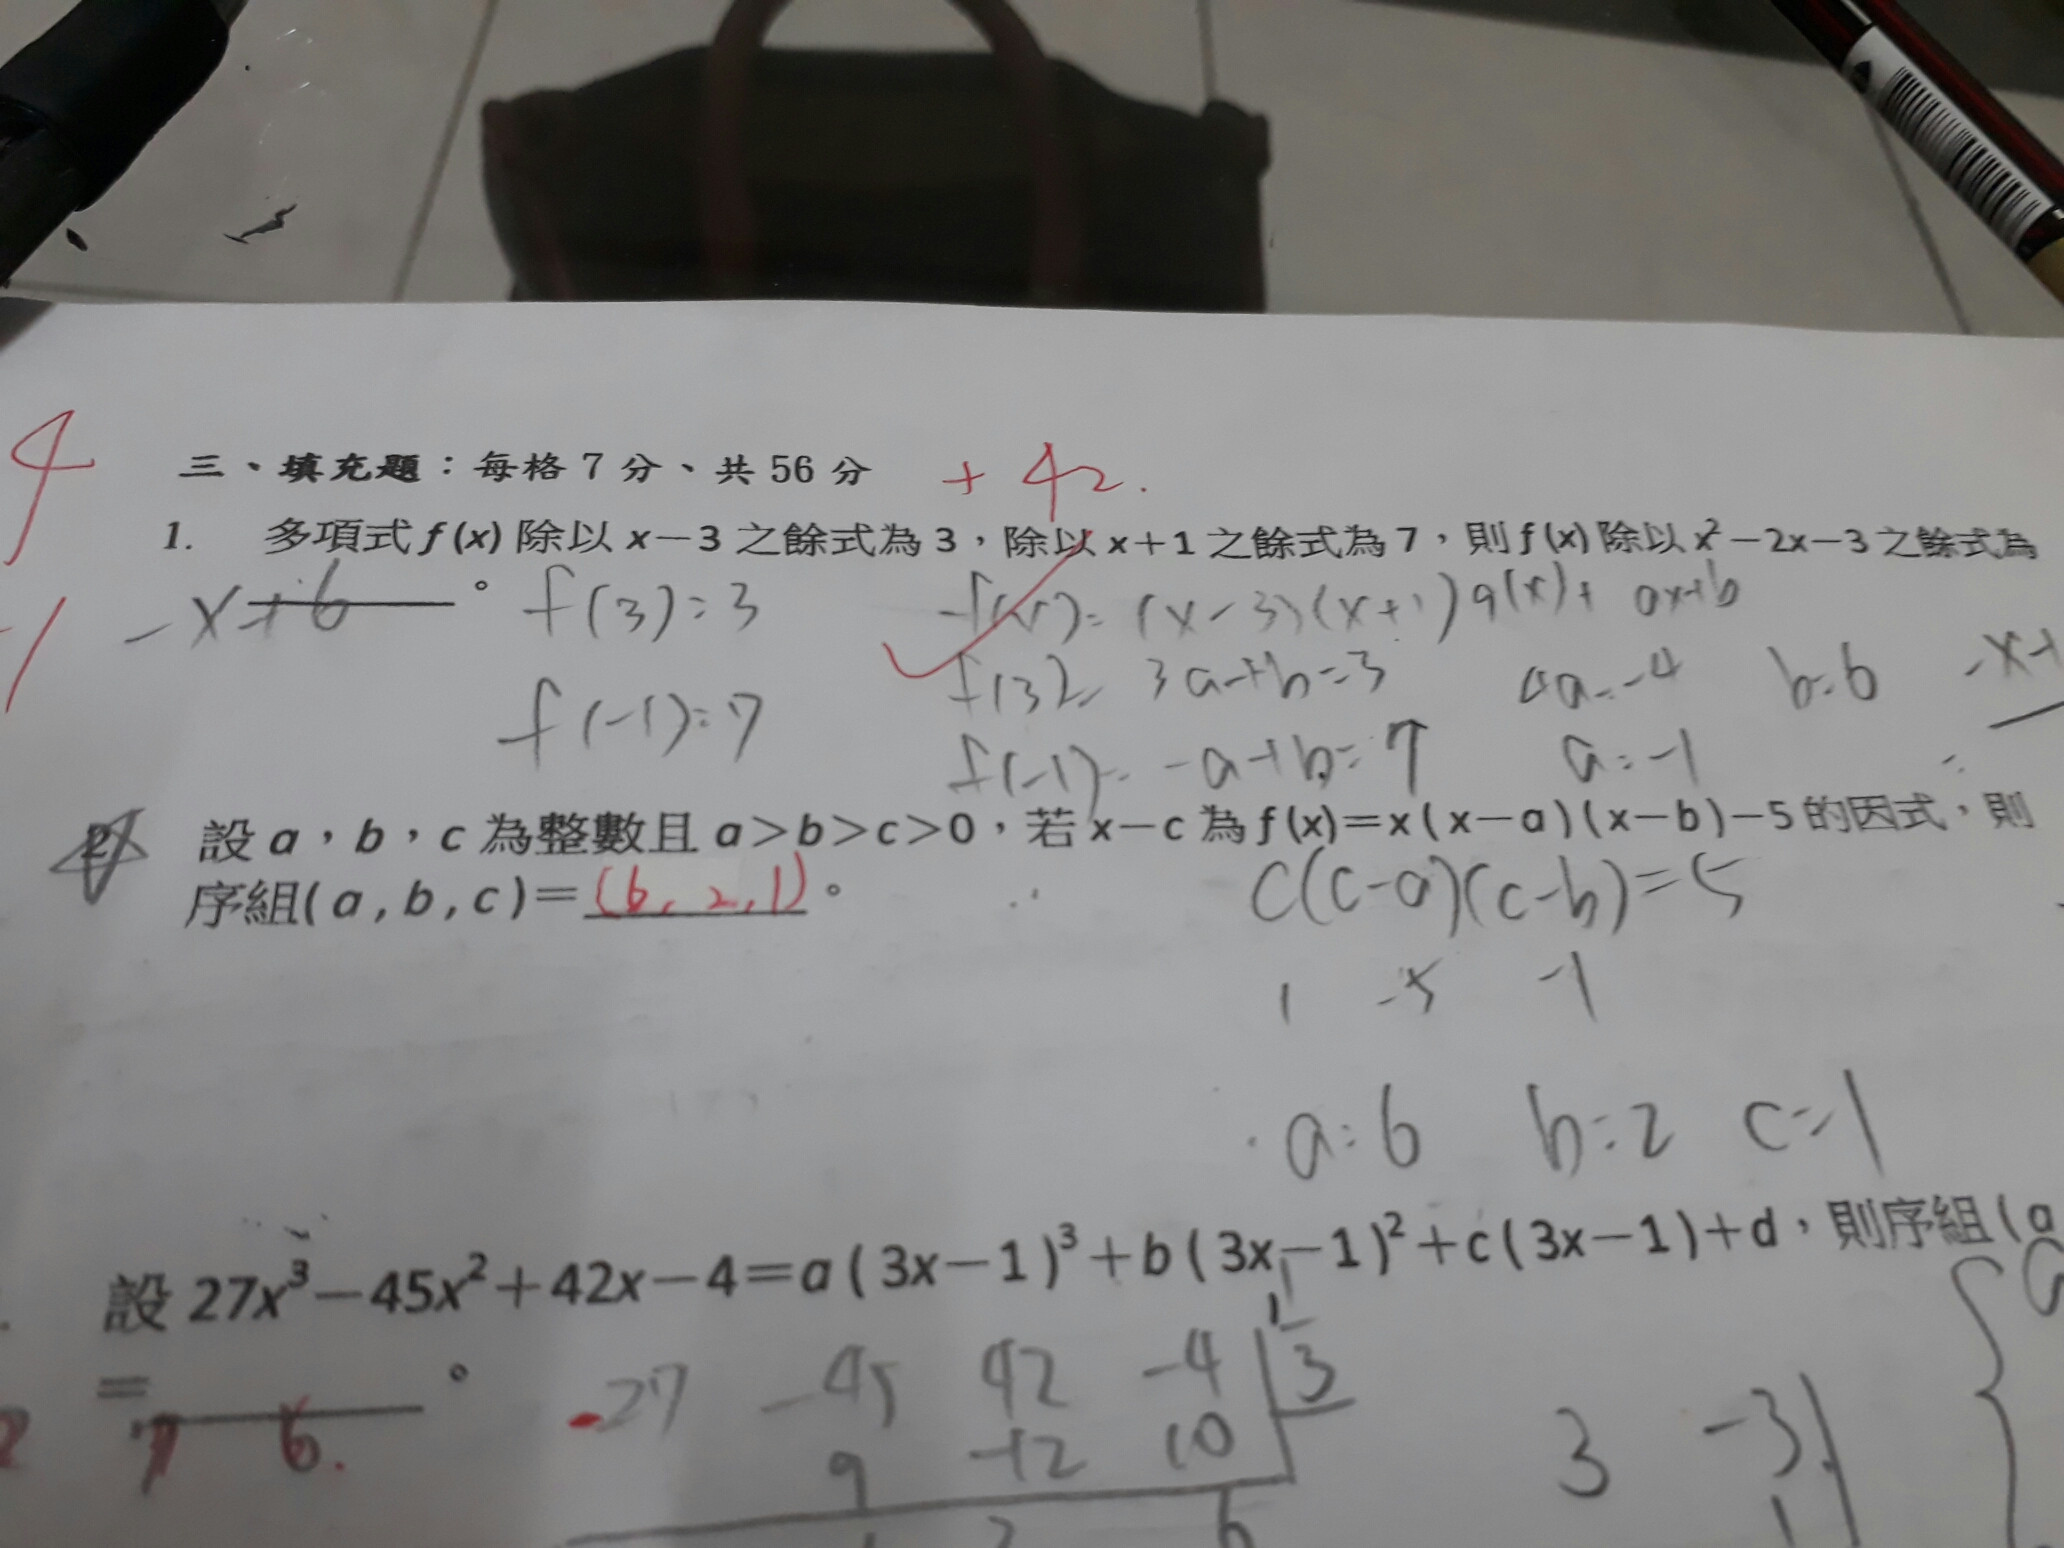 三、填充題：每格 7 分、共 56 分 + 42.
4
1. 多項式 f(x) 除以 x－3 之餘式為 3，除以 x＋1 之餘式為 7，則 f(x) 除以 x²－2x－3 之餘式為
-x+6 。 f(3)=3 f(x)= (x-3)(x+1)q(x)+ ax+b
f(3)= 3a+b=3 4a=-4 b=6 -x+
f(-1)=7
f(-1)= -a+b=7 a=-1
2 設 a，b，c 為整數且 a＞b＞c＞0，若 x－c 為 f(x)＝x(x－a)(x－b)－5 的因式，則
序組(a,b,c)＝(6,2,1)。 c(c-a)(c-b)=5
1 -5 -1
a=6 b=2 c=1
設 27x³－45x²＋42x－4＝a(3x－1)³＋b(3x－1)²＋c(3x－1)＋d，則序組(a
＝ 。
27 -45 42 -4 1
3
7 6.
9 -12 10
3 -3
6
1